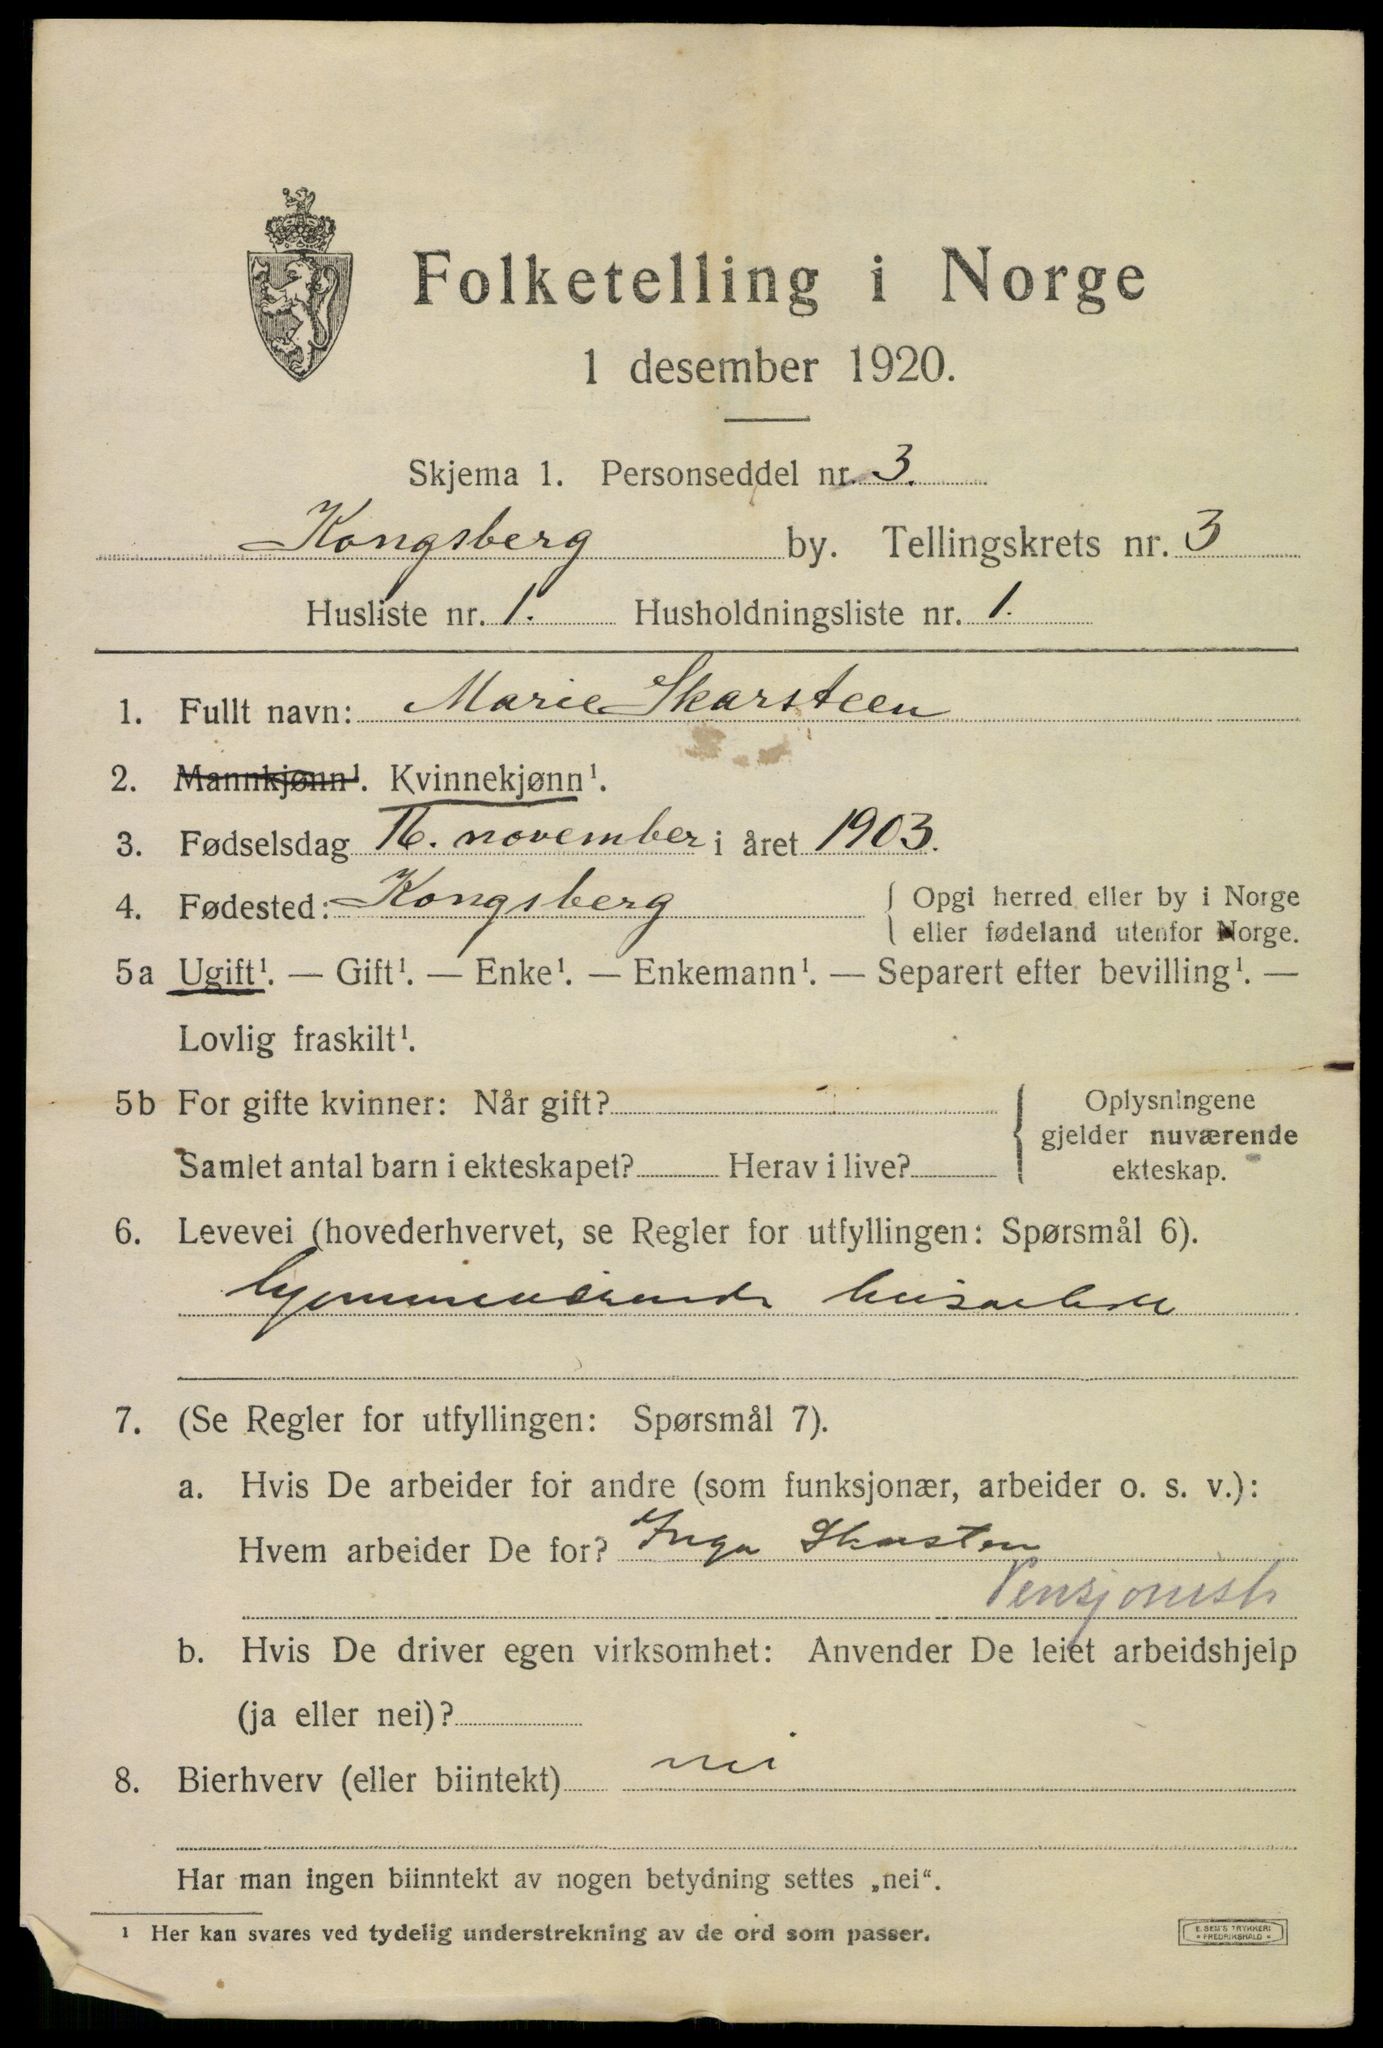 Folketelling i Norge
1 desember 1920.
Skjema 1. Personseddel nr. 3.
Kongsberg by. Tellingskrets nr. 3
Husliste nr. 1. Husholdningsliste nr. 1.
1. Fullt navn: Marie Skarsteen
2. Mannkjønn¹. Kvinnekjønn¹.
3. Fødselsdag 16. november i året 1903.
4. Fødested: Kongsberg { Opgi herred eller by i Norge
eller fødeland utenfor Norge.
5a Ugift¹. — Gift¹. — Enke¹. — Enkemann¹. — Separert efter bevilling¹. —
Lovlig fraskilt¹.
5b For gifte kvinner: Når gift? { Oplysningene
gjelder nuværende
Samlet antal barn i ekteskapet? Herav i live? ekteskap.
6. Levevei (hovederhvervet, se Regler for utfyllingen: Spørsmål 6).
hjemmeværende
7. (Se Regler for utfyllingen: Spørsmål 7).
a. Hvis De arbeider for andre (som funksjonær, arbeider o. s. v.):
Hvem arbeider De for? Inga Skarsten
Pensjonist
b. Hvis De driver egen virksomhet: Anvender De leiet arbeidshjelp
(ja eller nei)?
8. Bierhverv (eller biintekt) nei
Har man ingen biinntekt av nogen betydning settes „nei“.
¹ Her kan svares ved tydelig understrekning av de ord som passer.
E. SEM'S TRYKKERI
* FREDRIKSHALD *